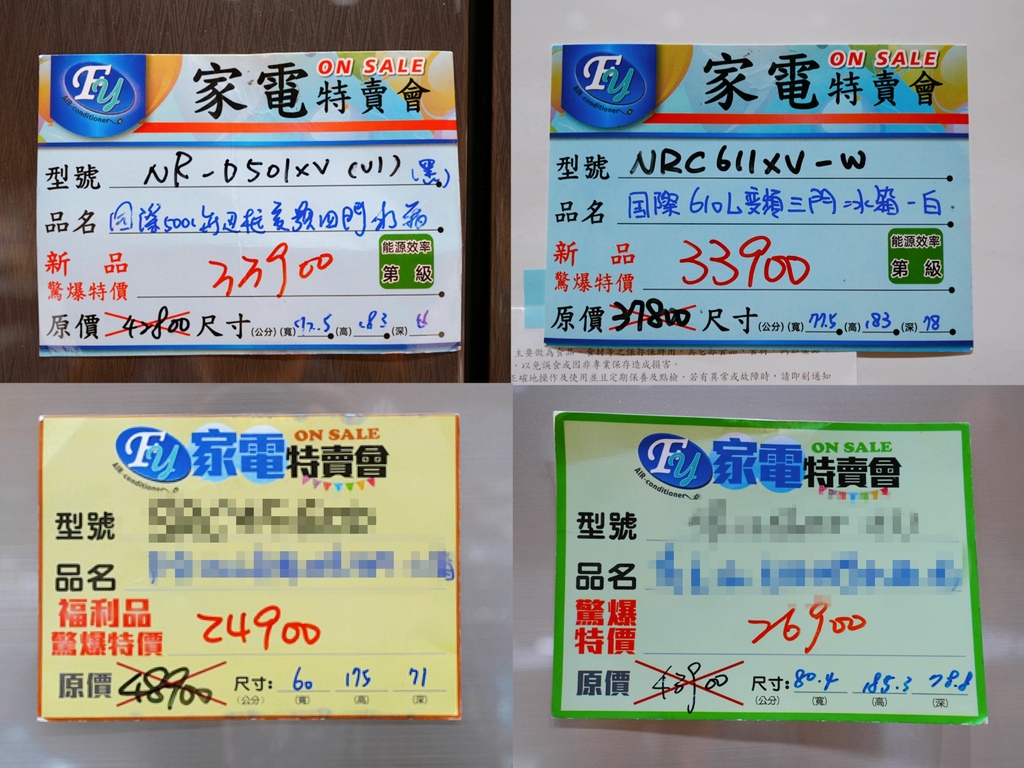 FY
AIR-conditioner
家電
ON SALE
特賣會
型號 NR-D501XV (V1) (黑)
品名 國際500L無邊框變頻四門冰箱
新品
驚爆特價 33900
能源效率
第 級
原價 42800 尺寸(公分)(寬)(高)183(深)
FY
AIR-conditioner
家電
ON SALE
特賣會
型號 NRC611XV-W
品名 国際610L變頻三門冰箱-白
新品
驚爆特價 33900
能源效率
第 級
原價 37800 尺寸(公分)(寬)77.5(高)183(深)78
，以免誤食或因非專業保存造成損害。
確地操作及使用並且定期保養及點檢，若有異常或故障時，請即刻通知
FY
AIR-conditioner
家電
ON SALE
特賣會
型號
品名
福利品
驚爆特價 24900
原價 48900 尺寸:(公分) 60(寬) 175(高) 71(深)
FY
AIR-conditioner
家電
ON SALE
特賣會
型號
品名
驚爆
特價 26900
原價 43900 尺寸:(公分) 80.4(寬) 185.3(高) 78.8(深)